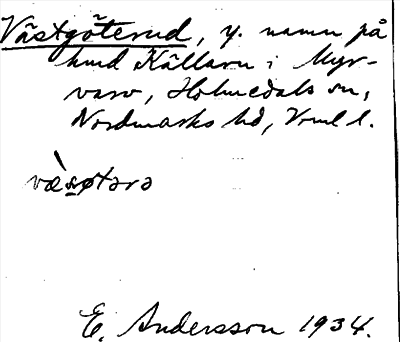 Västgöterud, y. namn på
hmd Källarn i Myr-
varv, Holmedals sn,
Nordmarks hd, Vrml l.
væ̀søtərə
E. Andersson 1934.